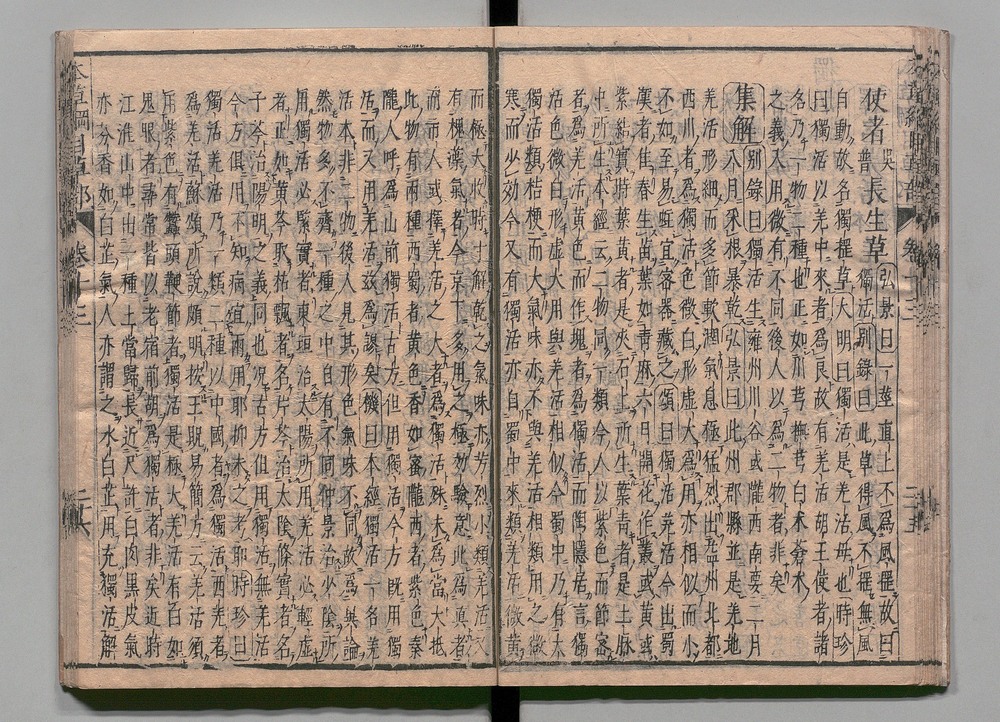 使者 吳普 長生草 弘景曰一莖直上不為風搖故曰
獨活別錄曰此草得風不搖無風
自動故名獨搖草大明曰獨活是羌活母也時珍
曰獨活以羌中來者為良故有羌活胡王使者諸
名乃一物二種也正如川芎撫芎白朮蒼朮
之義入用微有不同後人以為二物者非矣
集解 別錄曰獨活生雍州川谷或隴西南安二月
八月采根暴乾弘景曰此州郡縣並是羌地
羌活形細而多節軟潤氣息極猛烈出益州北都
西川者為獨活色微白形虛大為用亦相似而小
不如至易蛀宜密器藏之頌曰獨活羌活今出蜀
漢者佳春生苗葉如青麻六月開花作叢或黃或
紫結實時葉黃者是夾石上所生葉青者是土脉
中所生本經云二物同一類今人以紫色而節密
者為羌活黃色而作塊者為獨活而陶隱居言獨
活色微白形虛大用與羌活相似今蜀中乃有大
獨活類桔梗而大氣味亦不與羌活相類用之微
寒而少効今又有獨活亦自蜀中來類羌活微黃
而極大收時寸解乾之氣味亦芳烈小類羌活又
有槐葉氣者今京下多用之極効驗意此為真者
而市人或擇羌活之大者為獨活殊未為當大抵
此物有兩種西蜀者黃色香如蜜隴西者紫色秦
隴人呼為山前獨活古方但用獨活今方既用獨
活而又用羌活茲為謬矣機曰本經獨活一名羌
活本非二物後人見其形色氣味不同故為異論
然物多不齊一種之中自有不同仲景治少陰所
用獨活必緊實者東垣治太陽所用羌活必輕虛
者正如黃芩取枯飄者名片芩治太陰條實者名
子芩治陽明之義同也況古方但用獨活無羌活
今方俱用不知病宜兩用耶抑未之考耶時珍曰
獨活羌活乃一類二種以中國者為獨活西羌者
為羌活蘇頌所說頗明按王貺易簡方云羌活須
用紫色有蠶頭鞭節者獨活是極大羌活有臼如
鬼眼者尋常皆以老宿前胡為獨活者非矣近時
江淮山中出一種土當歸長近尺許白肉黑皮氣
亦芬香如白芷氣人亦謂之水白芷用充獨活解